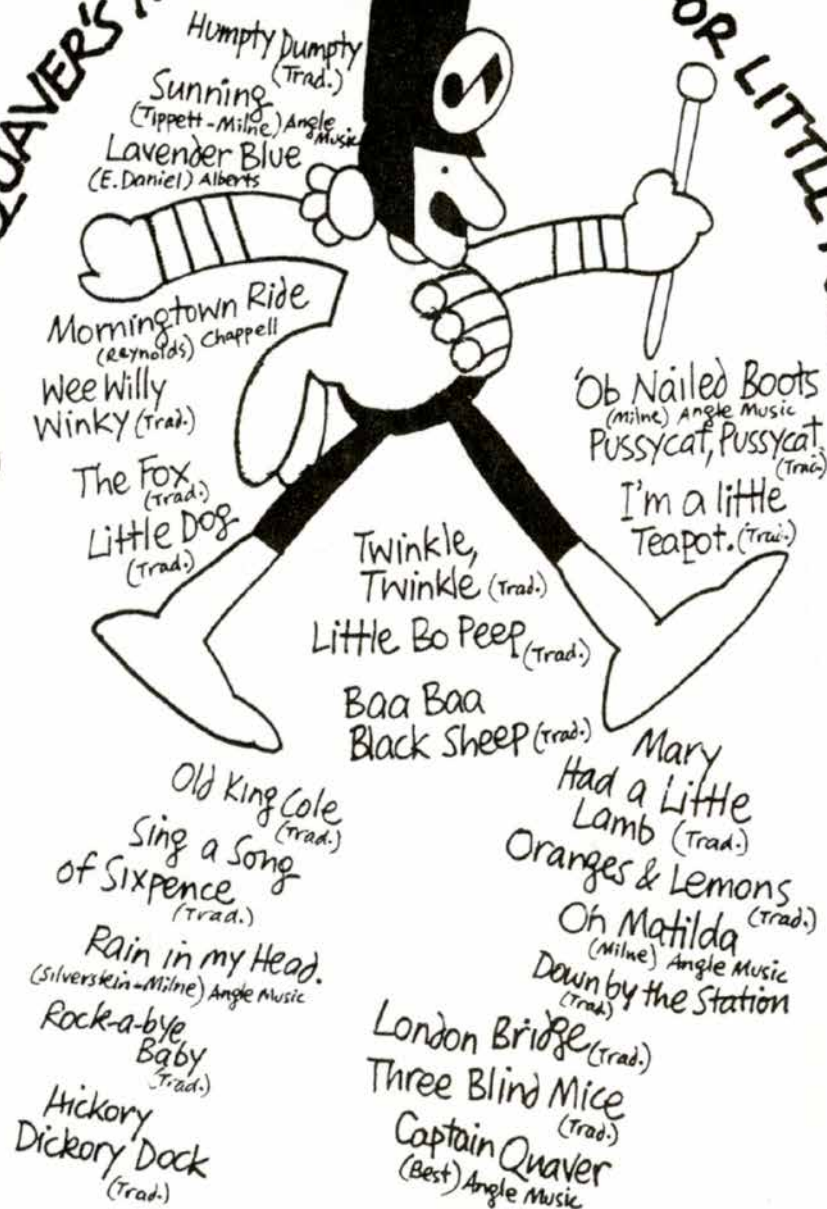 QUAVER'S
OR LITTLE
Humpty Dumpty
(Trad.)
Sunning
(Tippett-Milne) Angle
Music
Lavender Blue
(E. Daniel) Alberts
Morningtown Ride
(Reynolds) Chappell
Wee Willy
Winky (Trad.)
The Fox
(Trad.)
Little Dog
(Trad.)
'Ob Nailed Boots
(Milne) Angle Music
Pussycat, Pussycat
(Trad.)
I'm a little
Teapot. (Trad.)
Twinkle,
Twinkle (Trad.)
Little Bo Peep (Trad.)
Baa Baa
Black Sheep (Trad.)
Old King Cole
(Trad.)
Sing a Song
of Sixpence
(Trad.)
Rain in my Head.
(Silverstein-Milne) Angle Music
Rock-a-bye
Baby
(Trad.)
Hickory
Dickory Dock
(Trad.)
Mary
Had a Little
Lamb (Trad.)
Oranges & Lemons
(Trad.)
Oh Matilda
(Milne) Angle Music
Down by the Station
(Trad)
London Bridge (Trad.)
Three Blind Mice
(Trad.)
Captain Quaver
(Best) Angle Music